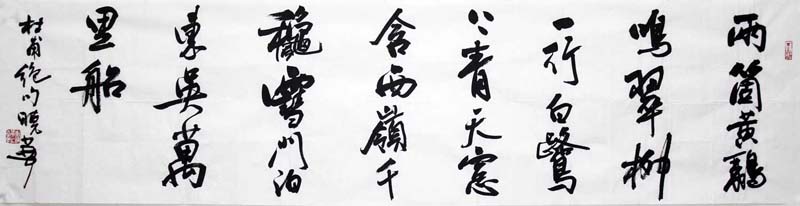 兩箇黃鸝
鳴翠柳
一行白鷺
上青天窓
含西嶺千
穐雪門泊
東吳萬
里船
杜甫絶句曉